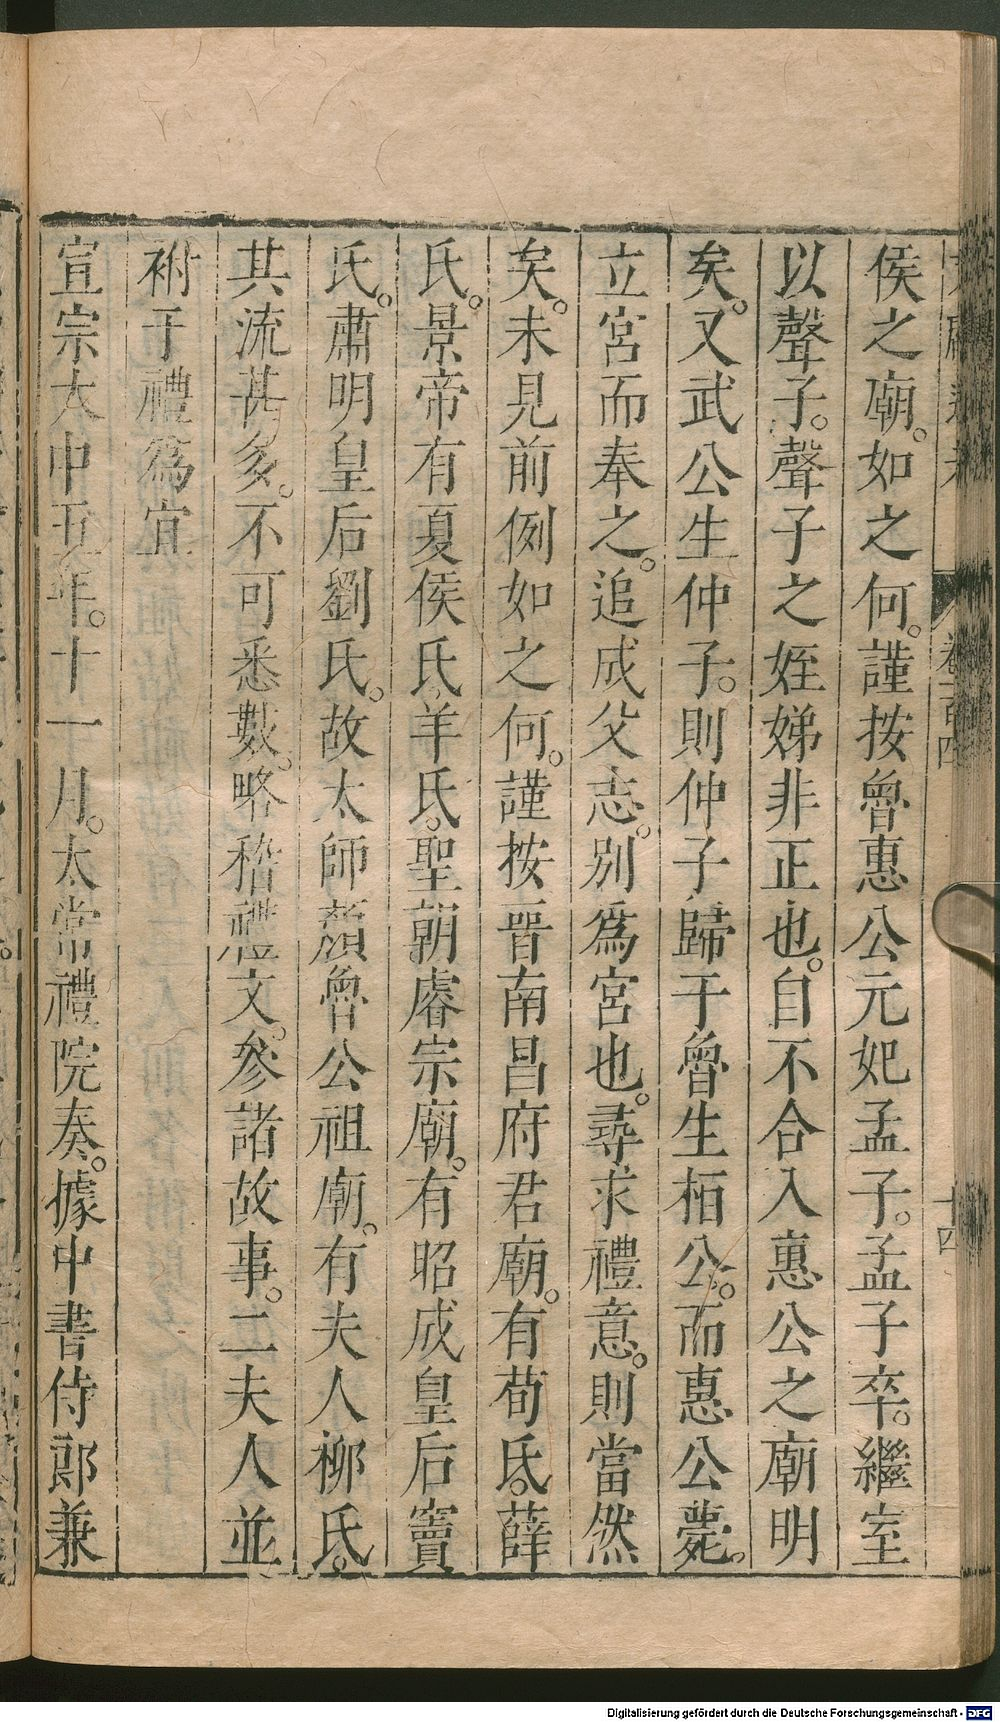 侯之廟。如之何。謹按魯惠公元妃孟子。孟子卒。繼室
以聲子。聲子之姪娣非正也。自不合入惠公之廟明
矣。又武公生仲子。則仲子歸于魯生桓公。而惠公薨。
立宮而奉之。追成父志。別爲宮也。尋求禮意。則當然
矣。未見前例如之何。謹按晉南昌府君廟。有荀氏。薛
氏。景帝有夏侯氏。羊氏。聖朝睿宗廟。有昭成皇后竇
氏。肅明皇后劉氏。故太師顏魯公祖廟。有夫人柳氏。
其流甚多。不可悉數。略稽禮文。參諸故事。二夫人並
祔于禮爲宜
宣宗大中五年。十一月。太常禮院奏。據中書侍郎兼
卷一百四
十四
Digitalisierung gefördert durch die Deutsche Forschungsgemeinschaft - DFG